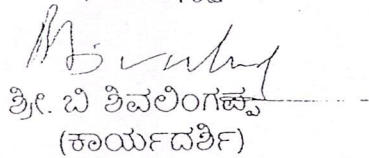 ಶ್ರೀ. ಬಿ ಶಿವಲಿಂಗಪ್ಪ
(ಕಾರ್ಯದರ್ಶಿ)